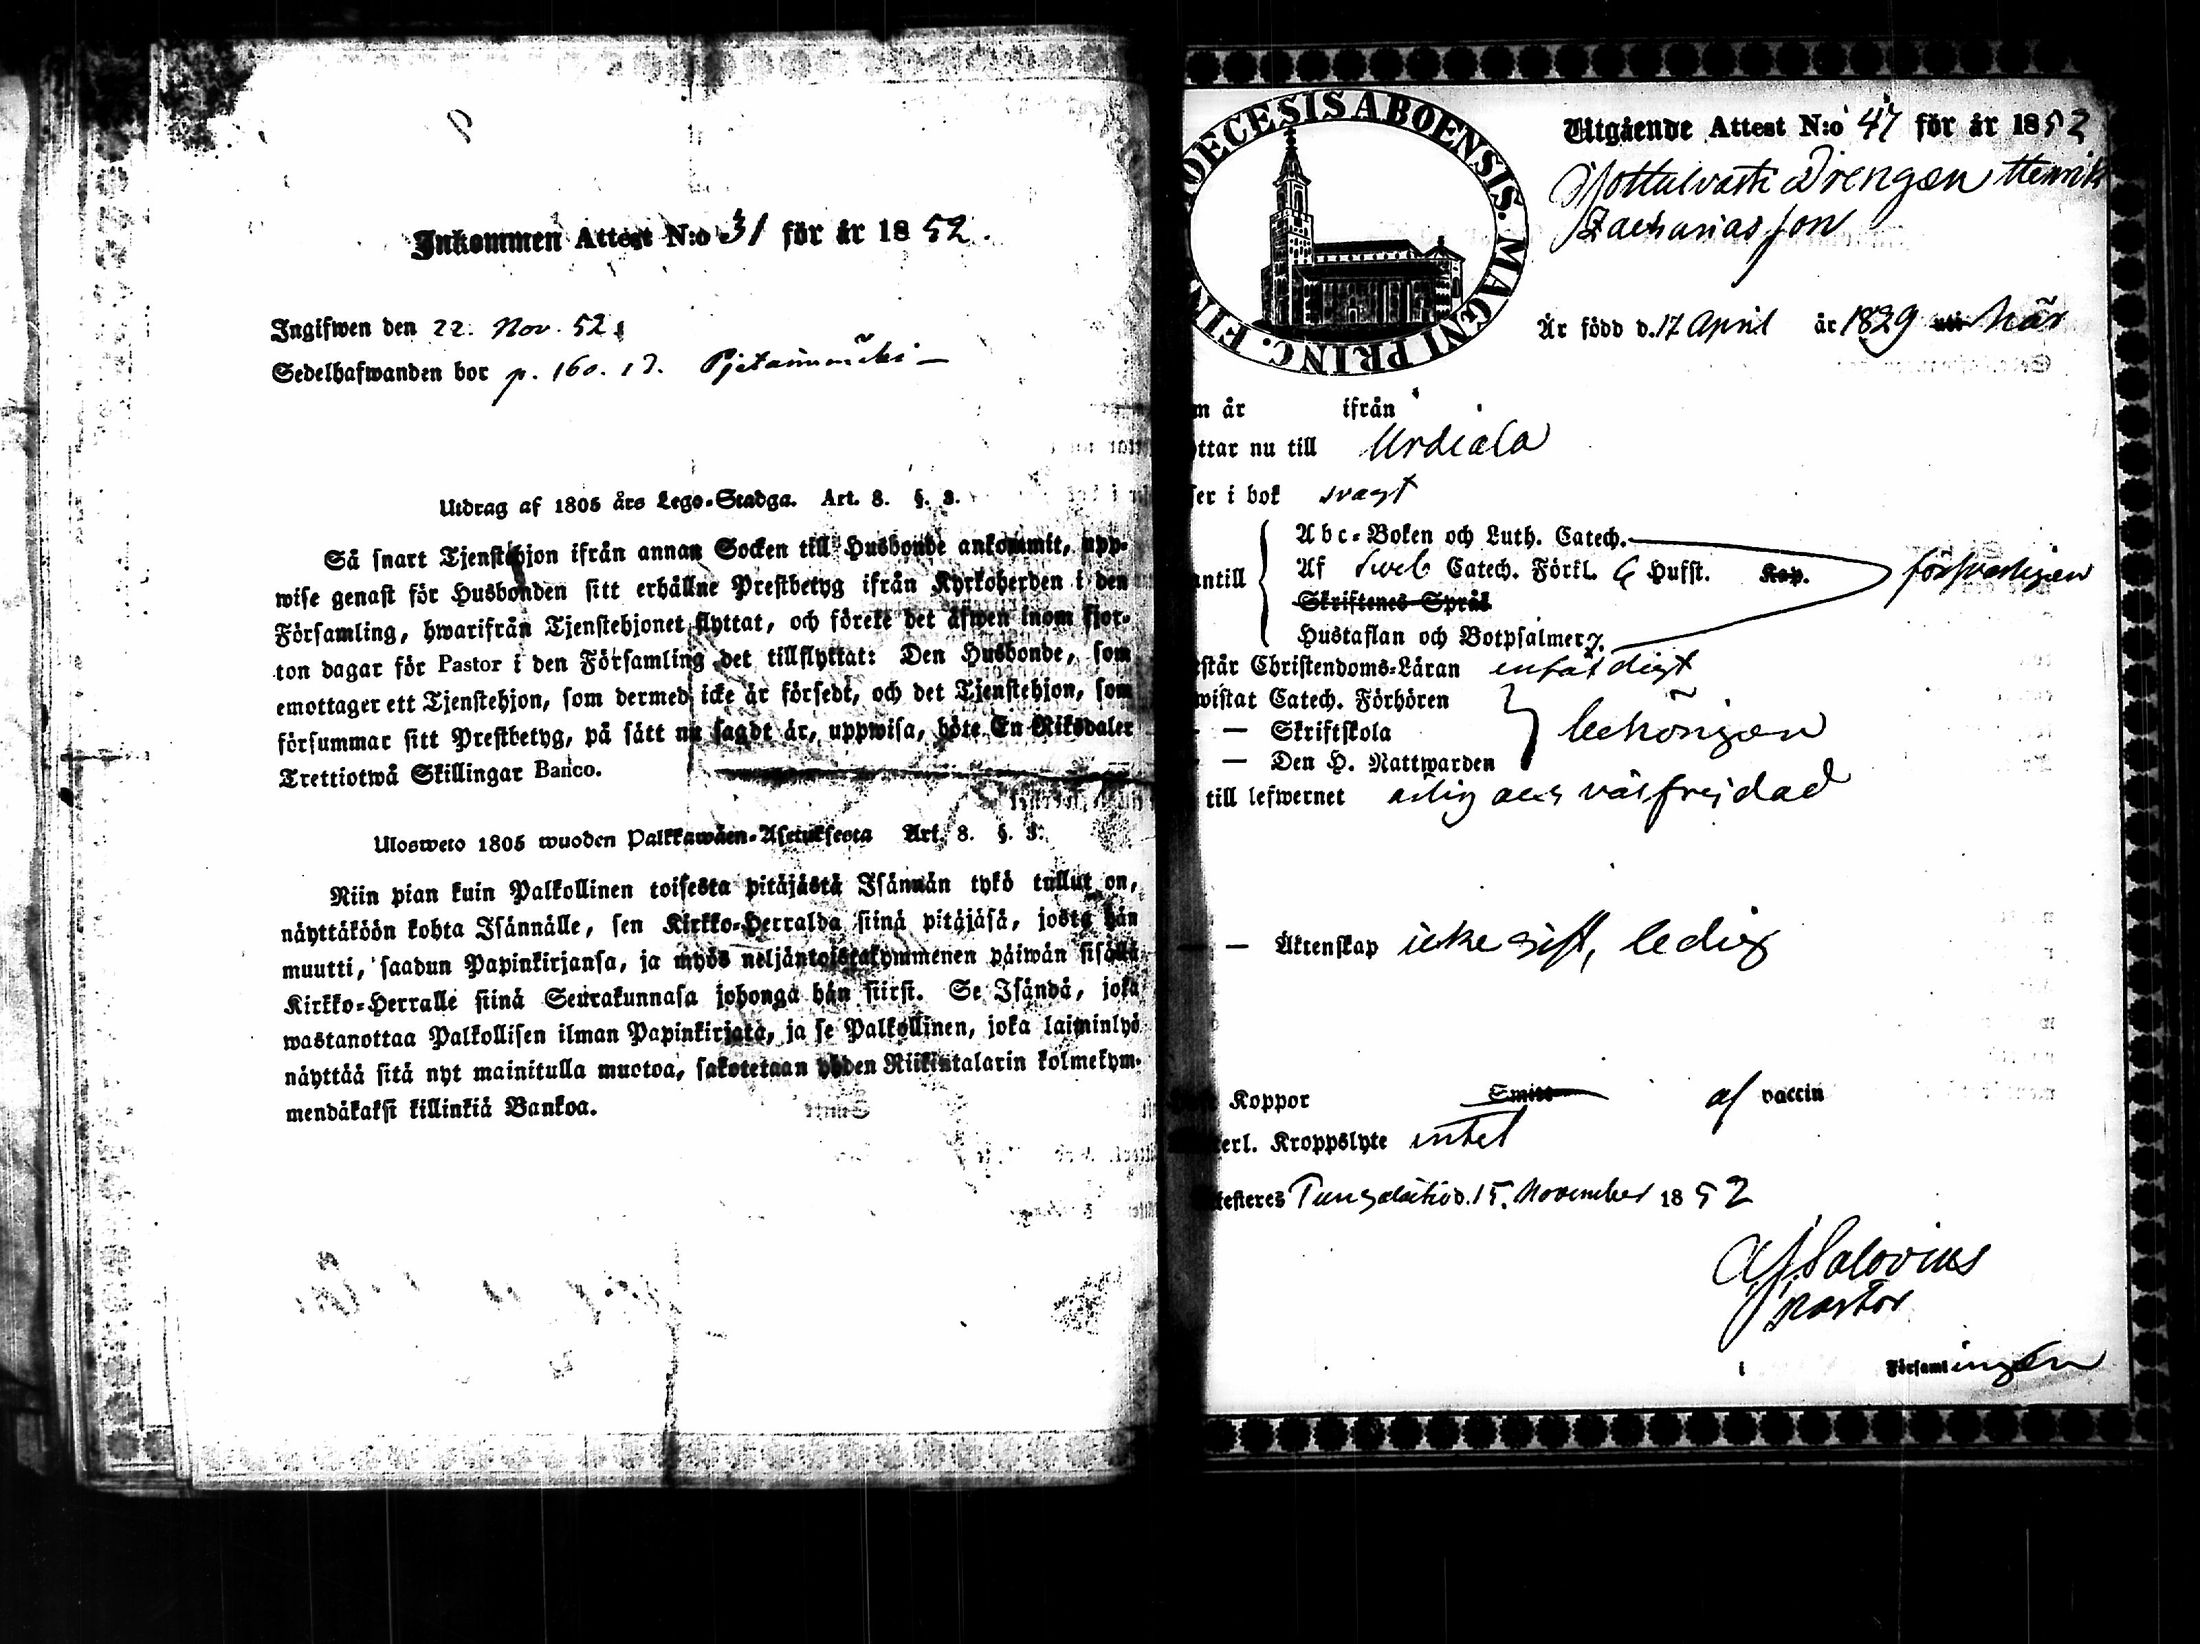 Inkommen Attest N:o 31 för år 1852.
Ingifwen den 22. Nov. 52.
Sedelhafwanden bor p. 160.
Utdrag af 1805 års Lego-Stadga. Art. 8. §. 3.
Så snart Tjenstehjon ifrån annan Socken till Husbonde ankommit, upp-
wise genast för Husbonden sitt erhållne Prestbetyg ifrån Kyrkoherden i den
Församling, hwarifrån Tjenstehjonet flyttat, och förete det äfwen inom fjor-
ton dagar för Pastor i den Församling det tillflyttat: Den Husbonde, som
emottager ett Tjenstehjon, som dermed icke är försedt, och det Tjenstehjon, som
försummar sitt Prestbetyg, på sätt nu sagdt är, uppwisa, böte En Riksdaler
Trettiotwå Skillingar Banco.
Ulosweto 1805 wuoden Palkkawäen-Asetuksesta Art. 8. §. 3.
Niin pian kuin Palkollinen toisesta pitäjästä Isännän tykö tullut on,
näyttäköön kohta Isännälle, sen Kirkko-Herralda siinä pitäjäsä, josta hän
muutti, saadun Papinkirjansa, ja myös neljäntoistakymmenen päiwän sisällä
Kirkko-Herralle siinä Seurakunnasa johonga hän siirsi. Se Isändä, joka
wastanottaa Palkollisen ilman Papinkirjata, ja se Palkollinen, joka laiminlyö
näyttää sitä nyt mainitulla muotoa, sakotetaan yhden Riikintalarin kolmekym-
mendäkaksi killinkiä Bankoa.
DIOECESIS ABOENSIS. MAGNI PRINC. FIN
Utgående Attest N:o 47 för år 1852
Drengen Henrik
Zachariasson
Är född d. 17 April år 1829 uti här
m år ifrån
ttar nu till Urdiala
ser i bok svagt
antill
Abc-Boken och Luth. Catech.
Af Sveb Catech. Förkl. Hufst. Kap. försvarligen
Skriftenes Språk
Hustaflan och Botpsalmer
står Christendoms-Läran enfaldigt
wistat Catech. Förhören
— Skriftskola behörigen
— Den H. Nattwarden
till lefwernet ärlig och välfrejdad
— Äktenskap icke gift, ledig
Koppor Smitt af vaccin
terl. Kroppslyte intet
testeres d. 15. November 1852
Salovius
pastor
i Församlingen